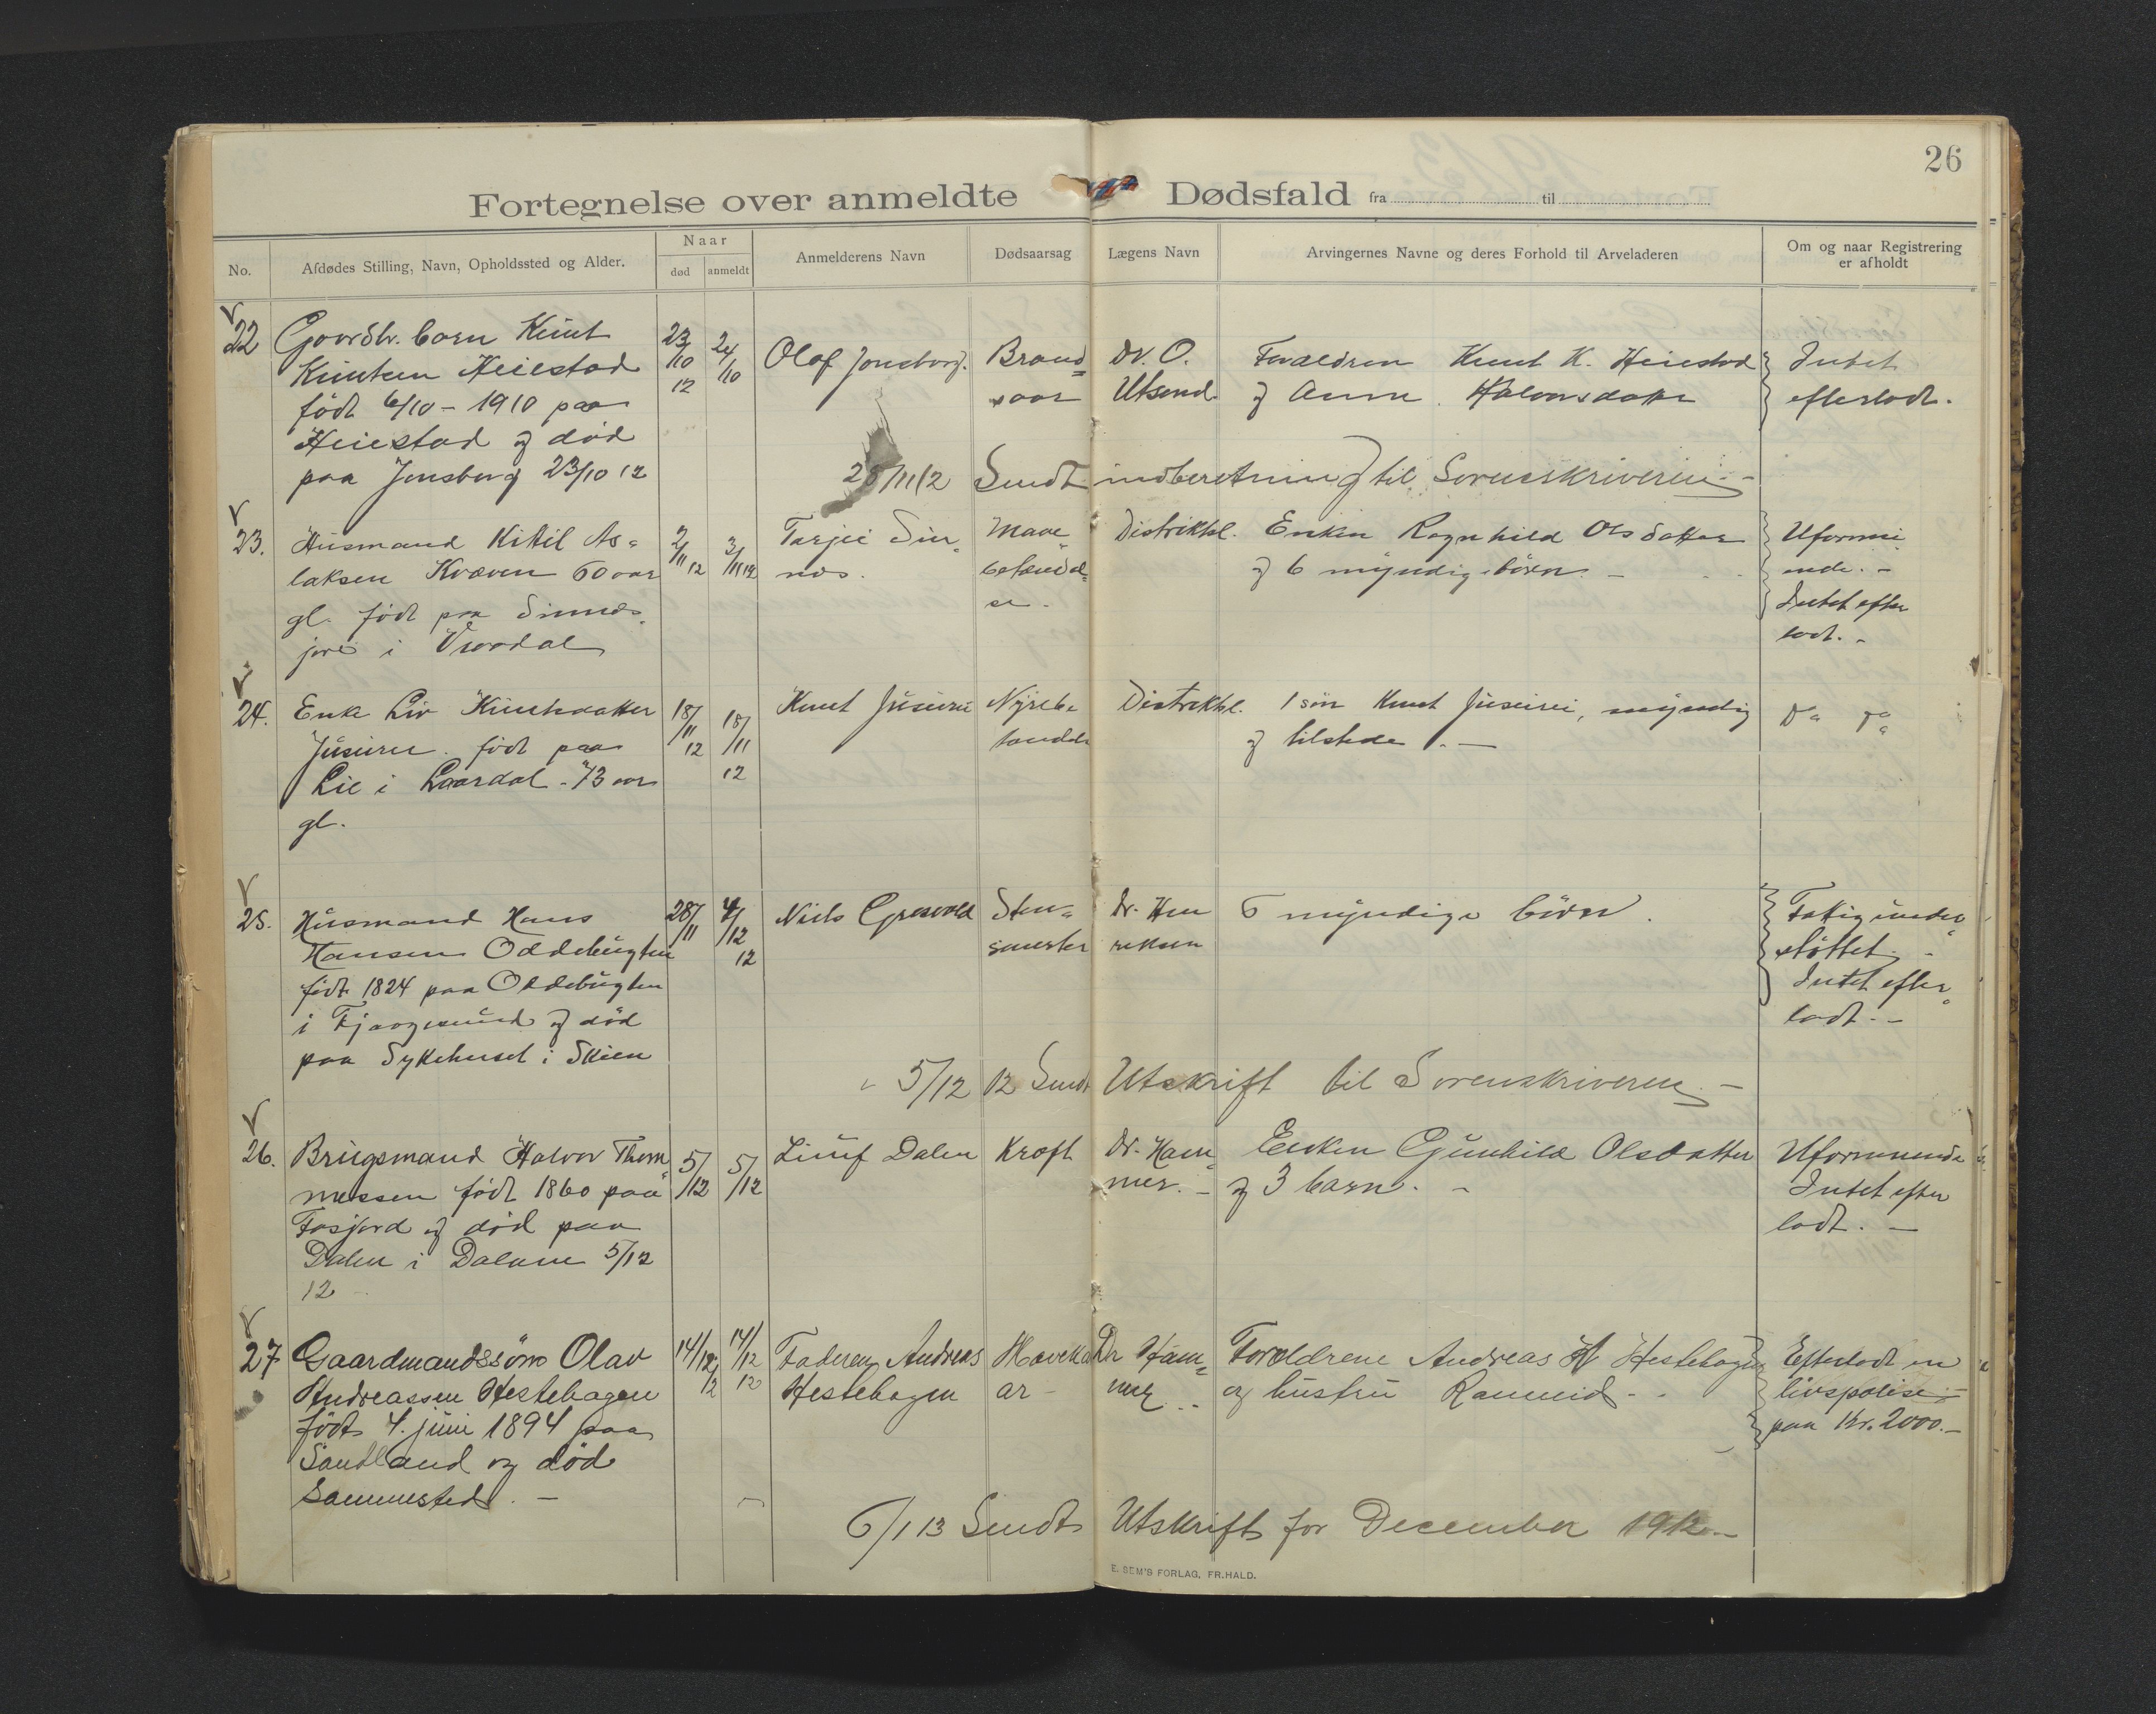 26
Fortegnelse over anmeldte Dødsfald fra til
No.
Afdødes Stilling, Navn, Opholdssted og Alder.
Naar
død
anmeldt
Anmelderens Navn
Dødsaarsag
Lægens Navn
Arvingernes Navne og deres Forhold til Arveladeren
Om og naar Registrering
er afholdt
22 Gaardbr. barn Knut
Knutsen Heiestad
født 6/10 - 1910 paa
Heiestad og død
paa Jonsborg 23/10 12
23/10 12
24/10
Olaf Jonsborg.
Brand
saar
Dr. O.
Utsond.
Forældren Knut K. Heiestad
og Anne Halvorsdatter
Intet
efterladt.
28/11 12 Sendt indberetning til Sorenskriveren. -
23. Husmand Kitil As-
laksen Kvæven 60 aar
gl. født paa Sinnes
i Vraadal
2/11 12
3/11 12
Tarjei Sin-
nes.
Mave
betændel-
se.
Distriktsl.
Enken Ragnhild Olsdatter
og 6 myndige børn. -
Uformu-
ende. -
Intet efter
ladt. -
24. Enke Liv Knutsdatter
Jusuru. født paa
Lie i Laardal - 73 aar
gl.
18/11 12
18/11
12
Knut Jusuru
Nyrebe
tændel
Distriktsl.
1 søn Knut Jusuru, myndig
og tilstede. -
Do Do
25. Husmand Hans
Hansen Oddebugten
født 1824 paa Oddebugten
i Fjaagesund og død
paa Sykehuset i Skien
28/11
4/12
12
Niels Gresvold
Sten-
smerter
Dr. Hen
reksen
6 myndige børn.
Fattigunder-
støttet. -
Intet efter-
ladt. -
5/12 12 Sendt Utskrift til Sorenskriveren. -
26. Brugsmand Halvor Thom-
messen født 1860 paa
Fosjord og død paa
Dalen i Dalane 5/12
12 -
5/12
5/12
Liuf Dalen
Kræft
Dr. Ham-
mer. -
Enken Gunhild Olsdatter
og 3 barn. -
Uformuende
Intet efter
ladt. -
27 Gaardmandssøn Olav
Andreassen Hestehagen
født 4. juni 1894 paa
Sandland og død
sammesteds. -
14/12
12
14/12
12
Faderen Andreas
Hestehagen
Dr Ham-
mer. -
Forældrene Andreas H Hestehagen
og hustru
Efterladt en
livspolise -
paa Kr. 2000. -
6/1 13 Sendt Utskrift for December 1912. -
E. SEM'S FORLAG, FR.HALD.